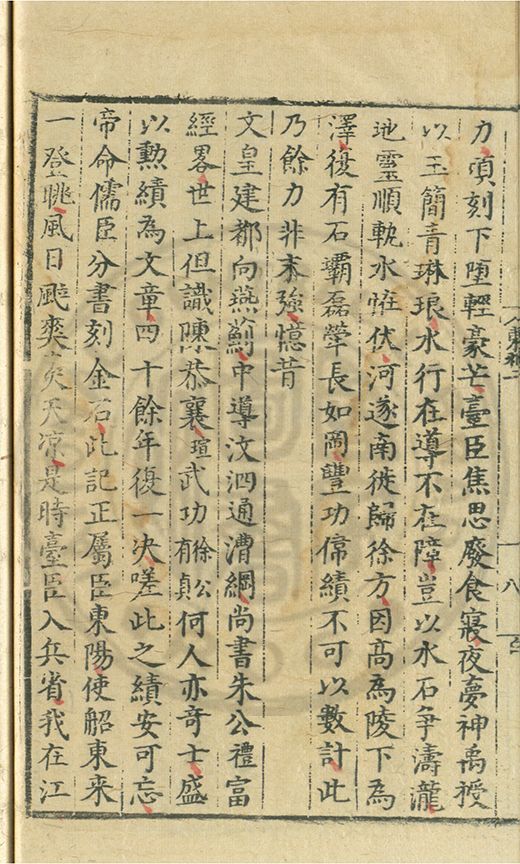 力頃刻下墮輕豪芒臺臣焦思廢食寢夜夢神禹授
以玉簡青琳琅水行在導不在障豈以水石争濤瀧
地霊順軌水恠伏河遂南徙歸徐方因高為陵下為
澤復有石壩磊犖長如岡豐功偉績不可以數計此
乃餘力非末強憶昔
文皇建都向燕薊中導汶泗通漕綱尚書朱公禮富
經畧世上但識陳恭襄瑄武功徐公有貞何人亦竒士盛
以勲績為文章四十餘年復一决嗟此之績安可忘
帝命儒臣分書刻金石此記正屬臣東陽使船東来
一登眺風日颯爽天凉是時臺臣入兵省我在江
十八